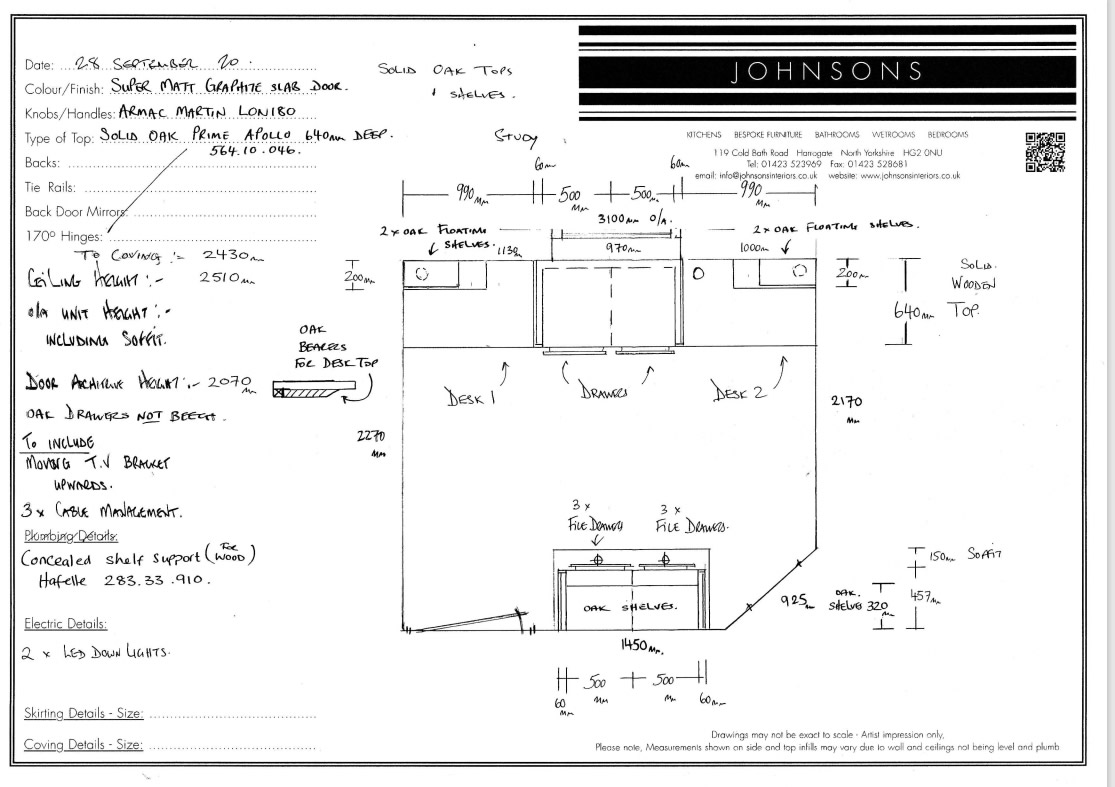 JOHNSONS
KITCHENS BESPOKE FURNITURE BATHROOMS WETROOMS BEDROOMS
119 Cold Bath Road Harrogate North Yorkshire HG2 0NU
Tel: 01423 523969 Fax: 01423 528681
email: info@johnsonsinteriors.co.uk website: www.johnsonsinteriors.co.uk
Date: 28 SEPTEMBER 20.
Colour/Finish: SUPER MATT GRAPHITE SLAB DOOR.
Knobs/Handles: ARMAC MARTIN LON180
Type of Top: SOLID OAK PRIME APOLLO 640mm DEEP.
564.10.046.
Backs:
Tie Rails:
Back Door Mirrors:
170º Hinges:
TO COVING :- 2430mm
CEILING HEIGHT :- 2510mm
O/A UNIT HEIGHT :-
INCLUDING SOFFIT.
DOOR ARCHITRAVE HEIGHT :- 2070mm
OAK DRAWERS NOT BEECH.
TO INCLUDE
MOVING T.V BRACKET
UPWARDS.
3 x CABLE MANAGEMENT.
Plumbing Details:
Concealed shelf support (FOR WOOD)
Hafelle 283.33.910.
Electric Details:
2 x LED DOWN LIGHTS.
Skirting Details - Size:
Coving Details - Size:
SOLID OAK TOPS
& SHELVES.
STUDY
60mm
60mm
990mm
500mm
500mm
990mm
3100mm O/A.
2 x OAK FLOATING
SHELVES.
2 x OAK FLOATING SHELVES.
970mm
1000mm
200mm
200mm
640mm
SOLID
WOODEN
TOP.
OAK
BEARERS
FOR DESK TOP
DESK 1
DRAWERS
DESK 2
2270mm
2170mm
3 x
FILE DRAWERS
3 x
FILE DRAWERS.
OAK SHELVES.
925mm
OAK.
SHELVES 320mm
457mm
150mm SOFFIT
1450mm.
60mm
500mm
500mm
60mm
Drawings may not be exact to scale - Artist impression only,
Please note, Measurements shown on side and top infills may vary due to wall and ceilings not being level and plumb